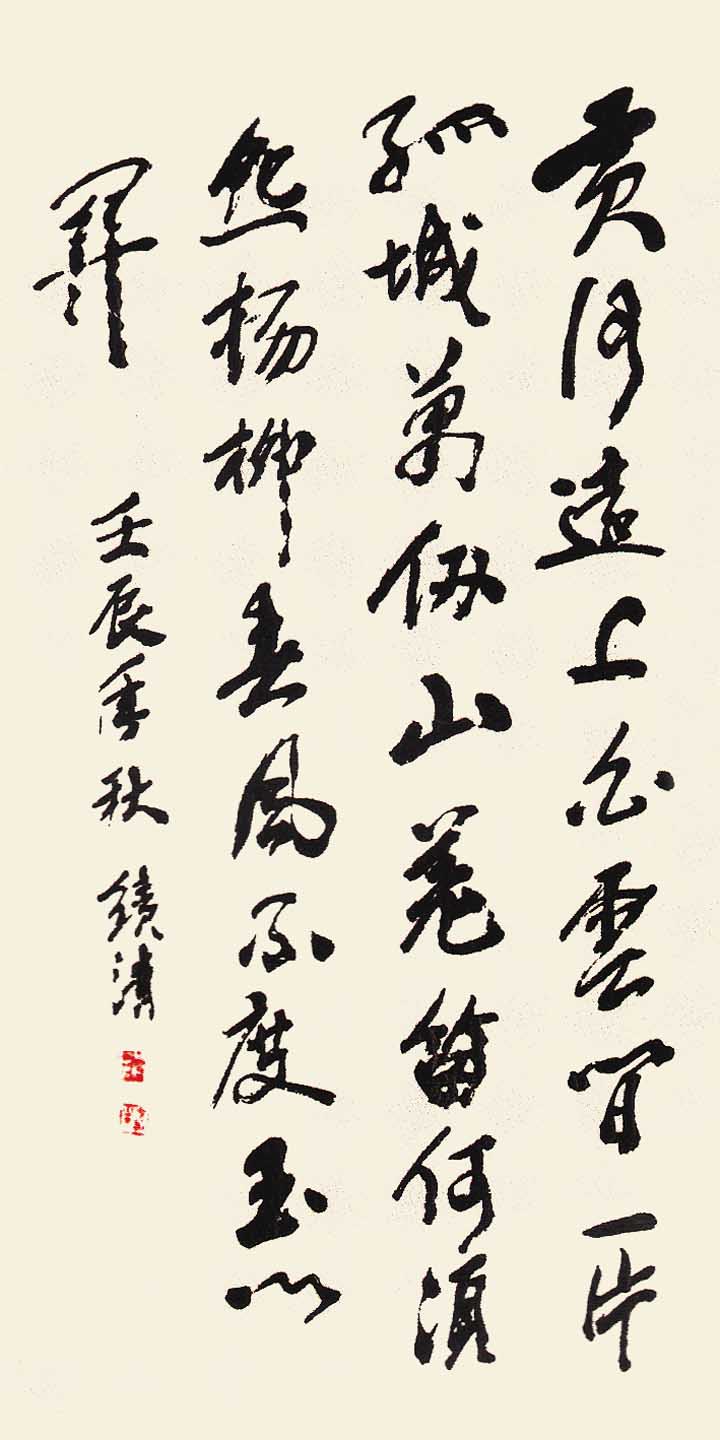 黄河遠上白雲間一片
孤城萬仞山羌笛何須
怨楊柳春風不度玉門
關
壬辰年秋 清